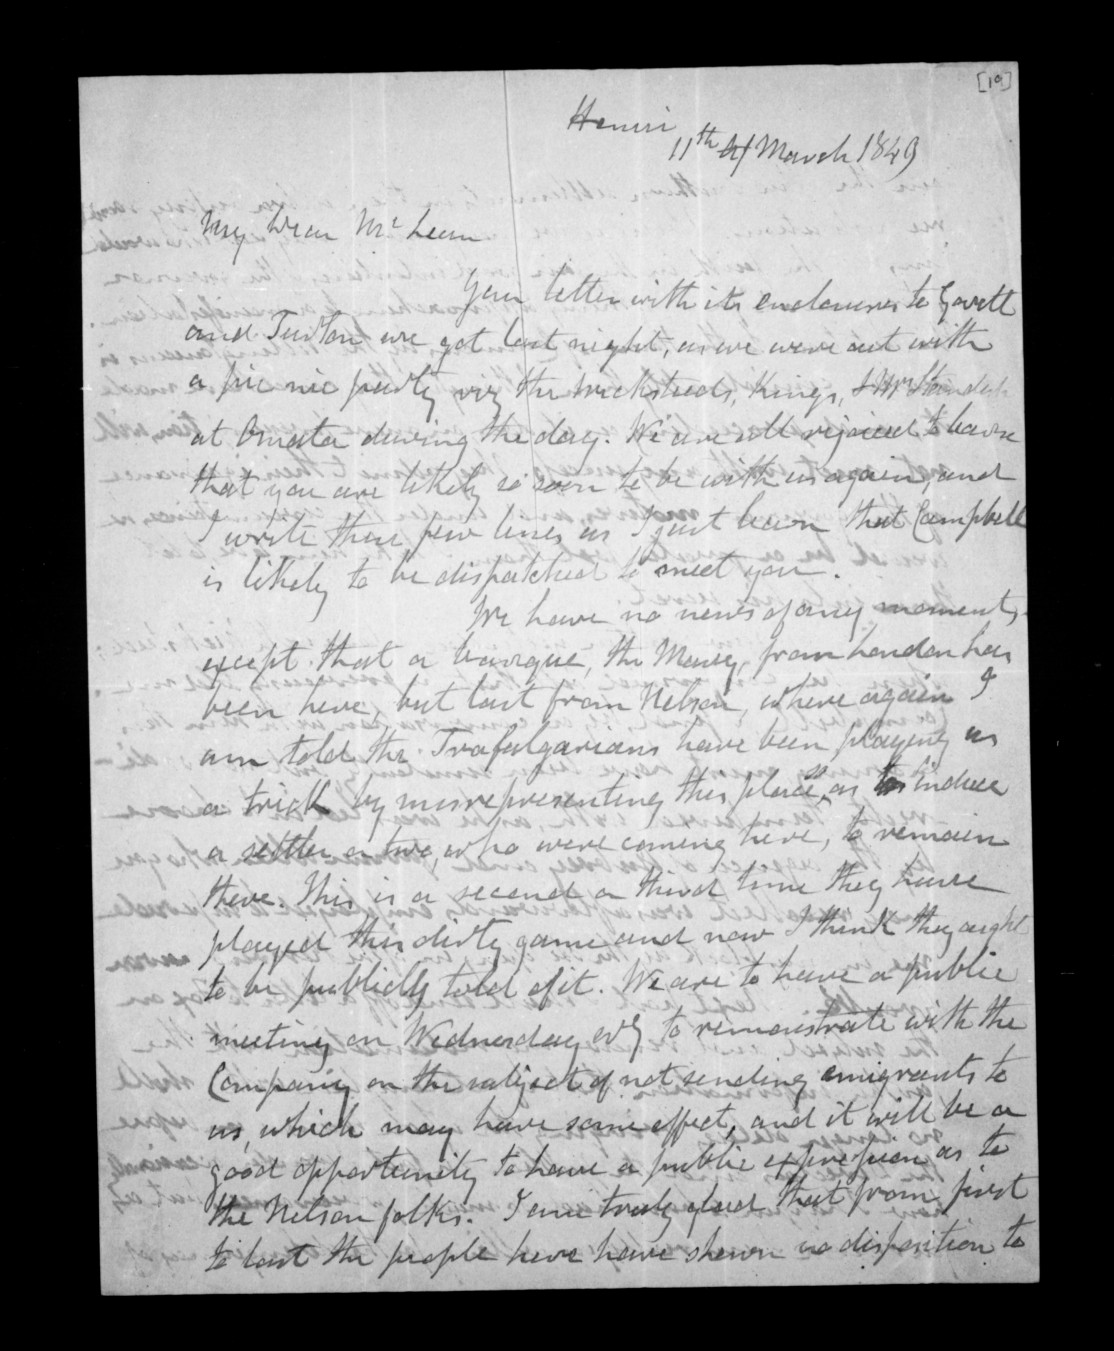 [19]
Henui
11th of March 1849
My Dear McLean
Your letter with its enclosures to Govett
and Turton we got last night, as we were out with
a pic nic party viz the Wicksteeds, Kings, & Mr Standish
at Omata during the day. We are all rejoiced to learn
that you are likely so soon to be with us again, and
I write these few lines as I just learn that Campbell
is likely to be dispatched to meet you.
We have no news of any moment,
except that a barque, the Mary, from London has
been here, but last from Nelson, where again I
am told the Trafalgarians have been playing us
a trick by misrepresenting this place, so as to induce
a settler or two, who were coming here, to remain
there. This is a second or third time they have
played this dirty game and now I think they ought
to be publicly told of it. We are to have a public
meeting on Wednesday wy to remonstrate with the
Company on the subject of not sending emigrants to
us, which may have some effect, and it will be a
good opportunity to have a public expression as to
the Nelson folks. I am truly glad that from first
to last the people here have shewn no disposition to